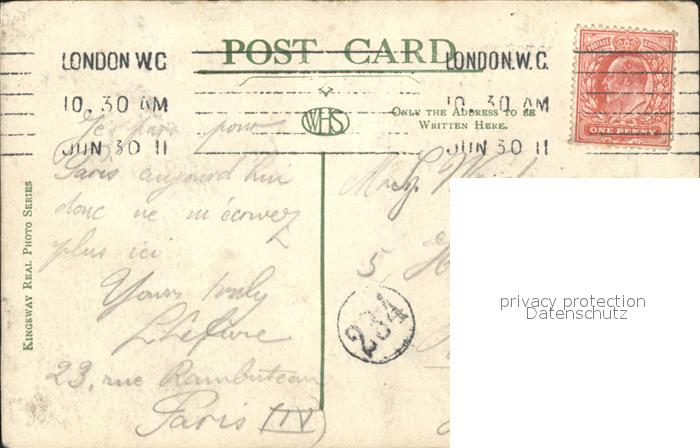 POST CARD
LONDON. W.C.
10. 30 AM
JUN 30 11
LONDON. W.C.
10. 30 AM
JUN 30 11
POSTAGE REVENUE
ONE PENNY
WHS
ONLY THE ADDRESS TO BE
WRITTEN HERE.
KINGSWAY REAL PHOTO SERIES
Je pars pour
Paris aujourd'hui
donc ne m'écrivez
plus ici
Yours truly
L Lefèvre
23, rue Rambuteau
Paris (IV)
5,
234
privacy protection
Datenschutz